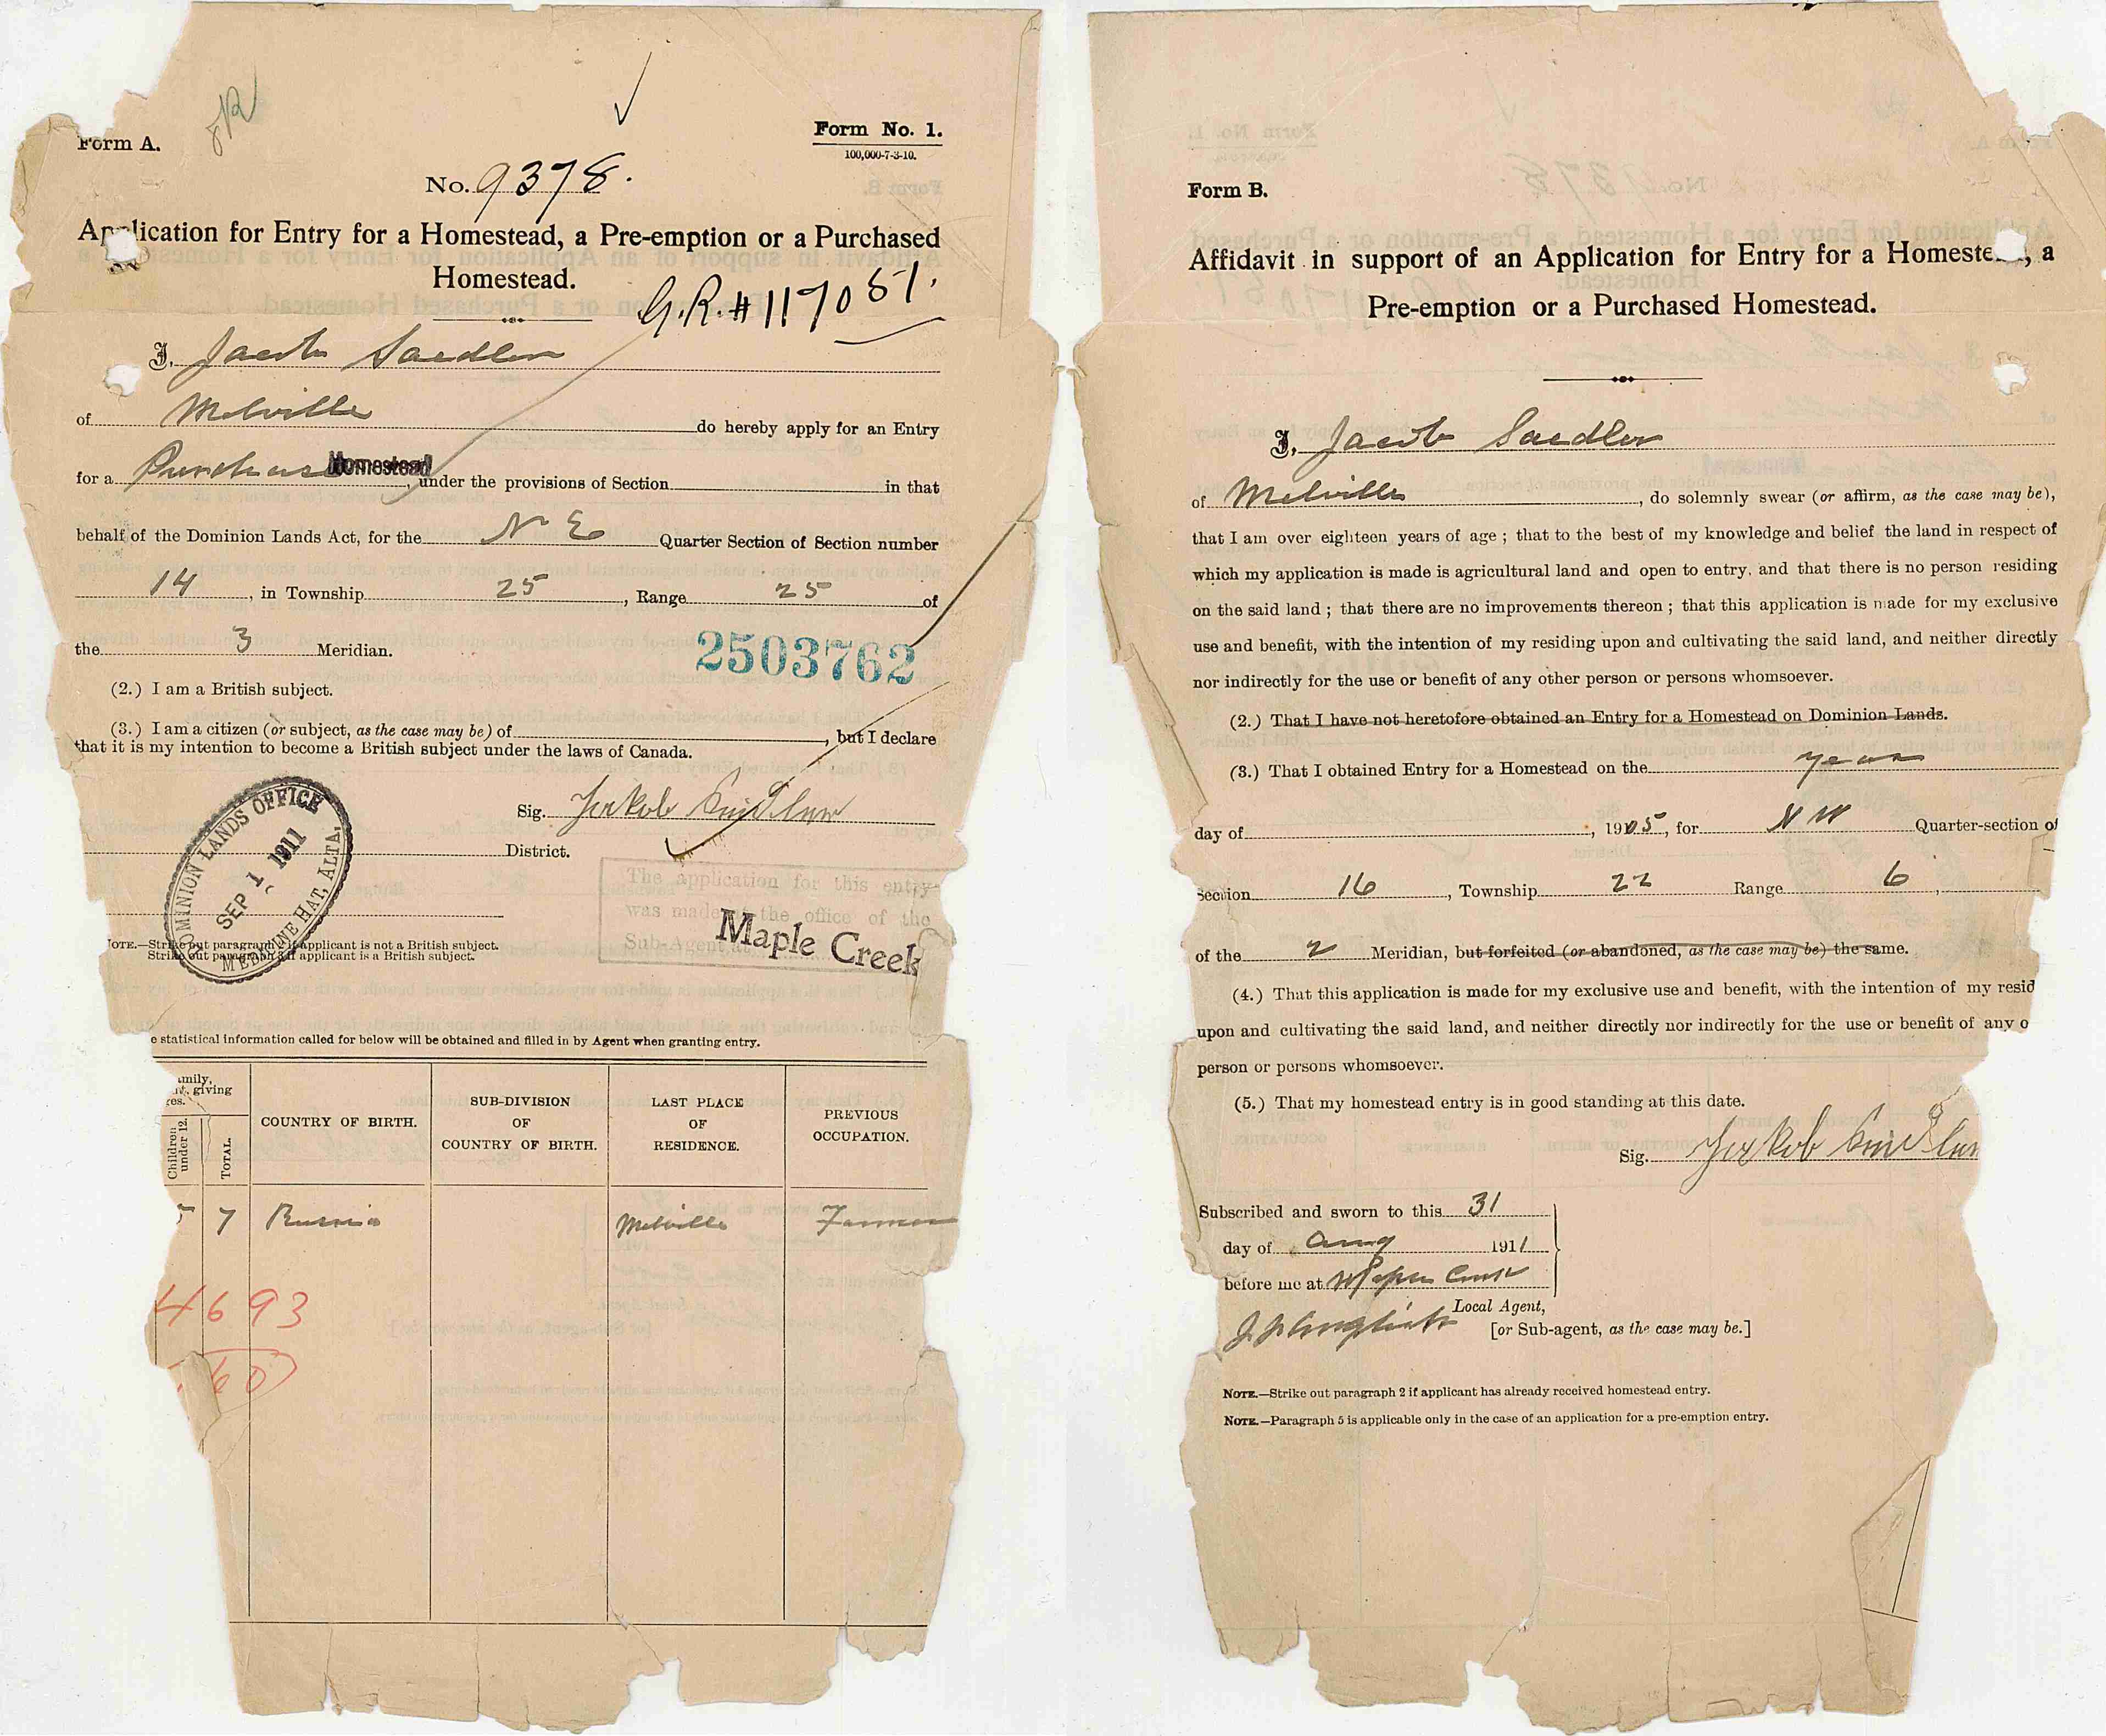 Form A.
Form No. 1.
100,000-7-3-10.
No. 9378.
Application for Entry for a Homestead, a Pre-emption or a Purchased
Homestead.
G.R. # 117051.
I, Jacob Saedler
of Melville do hereby apply for an Entry
for a Purchase Homestead, under the provisions of Section in that
behalf of the Dominion Lands Act, for the N E Quarter Section of Section number
14, in Township 25, Range 25 of
the 3 Meridian.
2503762
(2.) I am a British subject.
(3.) I am a citizen (or subject, as the case may be) of , but I declare
that it is my intention to become a British subject under the laws of Canada.
Sig. Jakob
District.
DOMINION LANDS OFFICE
SEP 1 1911
MEDICINE HAT, ALTA.
The application for this entry
was made at the office of the
Sub-Agent at
Maple Creek
NOTE.—Strike out paragraph 2 if applicant is not a British subject.
Strike out paragraph 3 if applicant is a British subject.
e statistical information called for below will be obtained and filled in by Agent when granting entry.
giving
Children under 12.
TOTAL.
COUNTRY OF BIRTH.
SUB-DIVISION OF COUNTRY OF BIRTH.
LAST PLACE OF RESIDENCE.
PREVIOUS OCCUPATION.
5 7 Russia Melville Farmer
4693
60
Form B.
Affidavit in support of an Application for Entry for a Homestead, a
Pre-emption or a Purchased Homestead.
I, Jacob Saedler
of Melville, do solemnly swear (or affirm, as the case may be),
that I am over eighteen years of age; that to the best of my knowledge and belief the land in respect of
which my application is made is agricultural land and open to entry, and that there is no person residing
on the said land; that there are no improvements thereon; that this application is made for my exclusive
use and benefit, with the intention of my residing upon and cultivating the said land, and neither directly
nor indirectly for the use or benefit of any other person or persons whomsoever.
(2.) That I have not heretofore obtained an Entry for a Homestead on Dominion Lands.
(3.) That I obtained Entry for a Homestead on the year
day of , 1905, for N W Quarter-section of
Section 16, Township 22 Range 6,
of the 2 Meridian, but forfeited (or abandoned, as the case may be) the same.
(4.) That this application is made for my exclusive use and benefit, with the intention of my resid
upon and cultivating the said land, and neither directly nor indirectly for the use or benefit of any o
person or persons whomsoever.
(5.) That my homestead entry is in good standing at this date.
Sig. Jakob
Subscribed and sworn to this 31
day of Aug 1911
before me at Maple Creek
Local Agent,
[or Sub-agent, as the case may be.]
NOTE.—Strike out paragraph 2 if applicant has already received homestead entry.
NOTE.—Paragraph 5 is applicable only in the case of an application for a pre-emption entry.